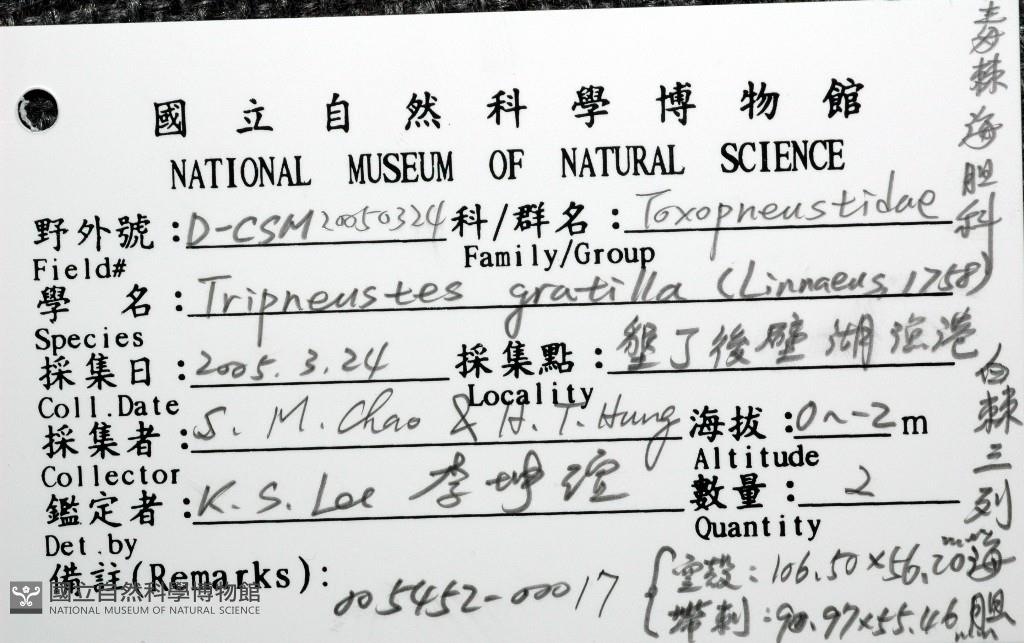 國立自然科學博物館
NATIONAL MUSEUM OF NATURAL SCIENCE
野外號:D-CSM20050324 科/群名:Toxopneustidae
Field# Family/Group
學 名:Tripneustes gratilla (Linnaeus, 1758)
Species
採集日:2005.3.24 採集點:墾丁後壁湖漁港
Coll.Date Locality
採集者:S. M. Chao & H. T. Hung 海拔:0~-2m
Collector Altitude
鑑定者:K. S. Lee 李坤瑄 數量:2
Det.by Quantity
備註(Remarks):005452-00017
空殼:106.50×56.20mm
帶刺:90.97×55.46mm
毒棘海胆科
白棘三列海胆
國立自然科學博物館
NATIONAL MUSEUM OF NATURAL SCIENCE